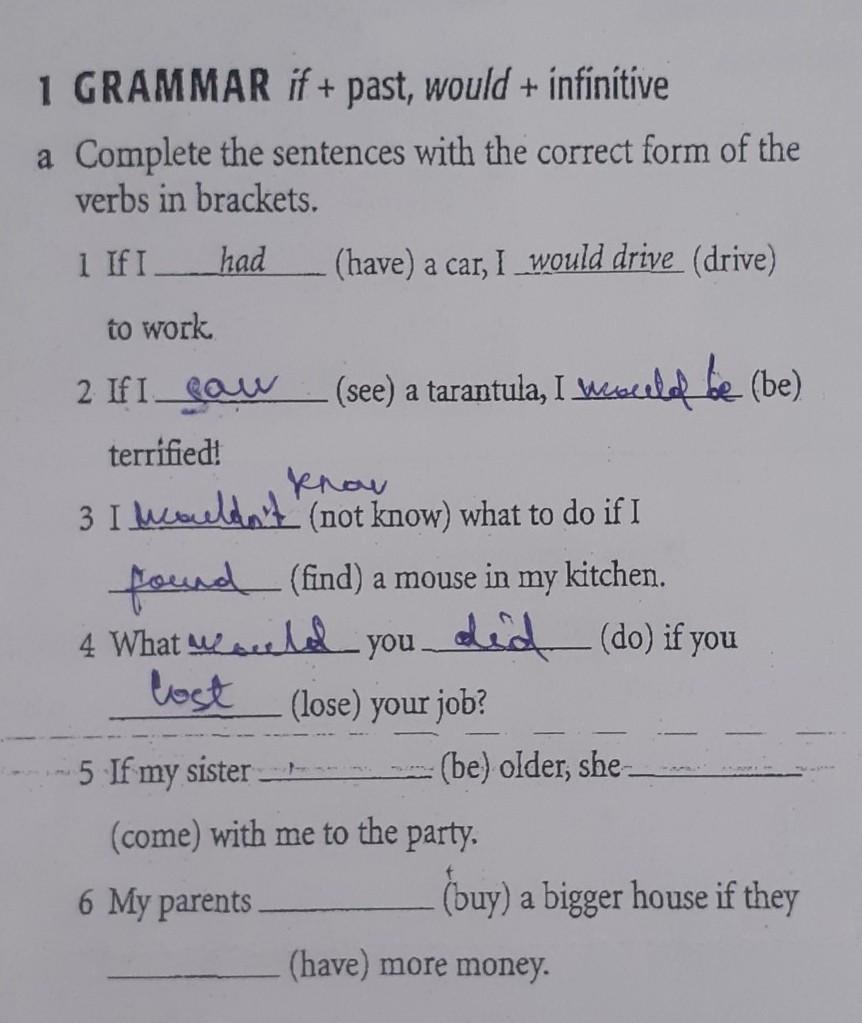 1 GRAMMAR if + past, would + infinitive
a Complete the sentences with the correct form of the
verbs in brackets.
1 If I had (have) a car, I would drive (drive)
to work.
2 If I saw (see) a tarantula, I would be (be)
terrified!
know
3 I wouldn't (not know) what to do if I
found (find) a mouse in my kitchen.
4 What would you did (do) if you
lost (lose) your job?
5 If my sister ______ (be) older, she ______
(come) with me to the party.
6 My parents ______ (buy) a bigger house if they
______ (have) more money.